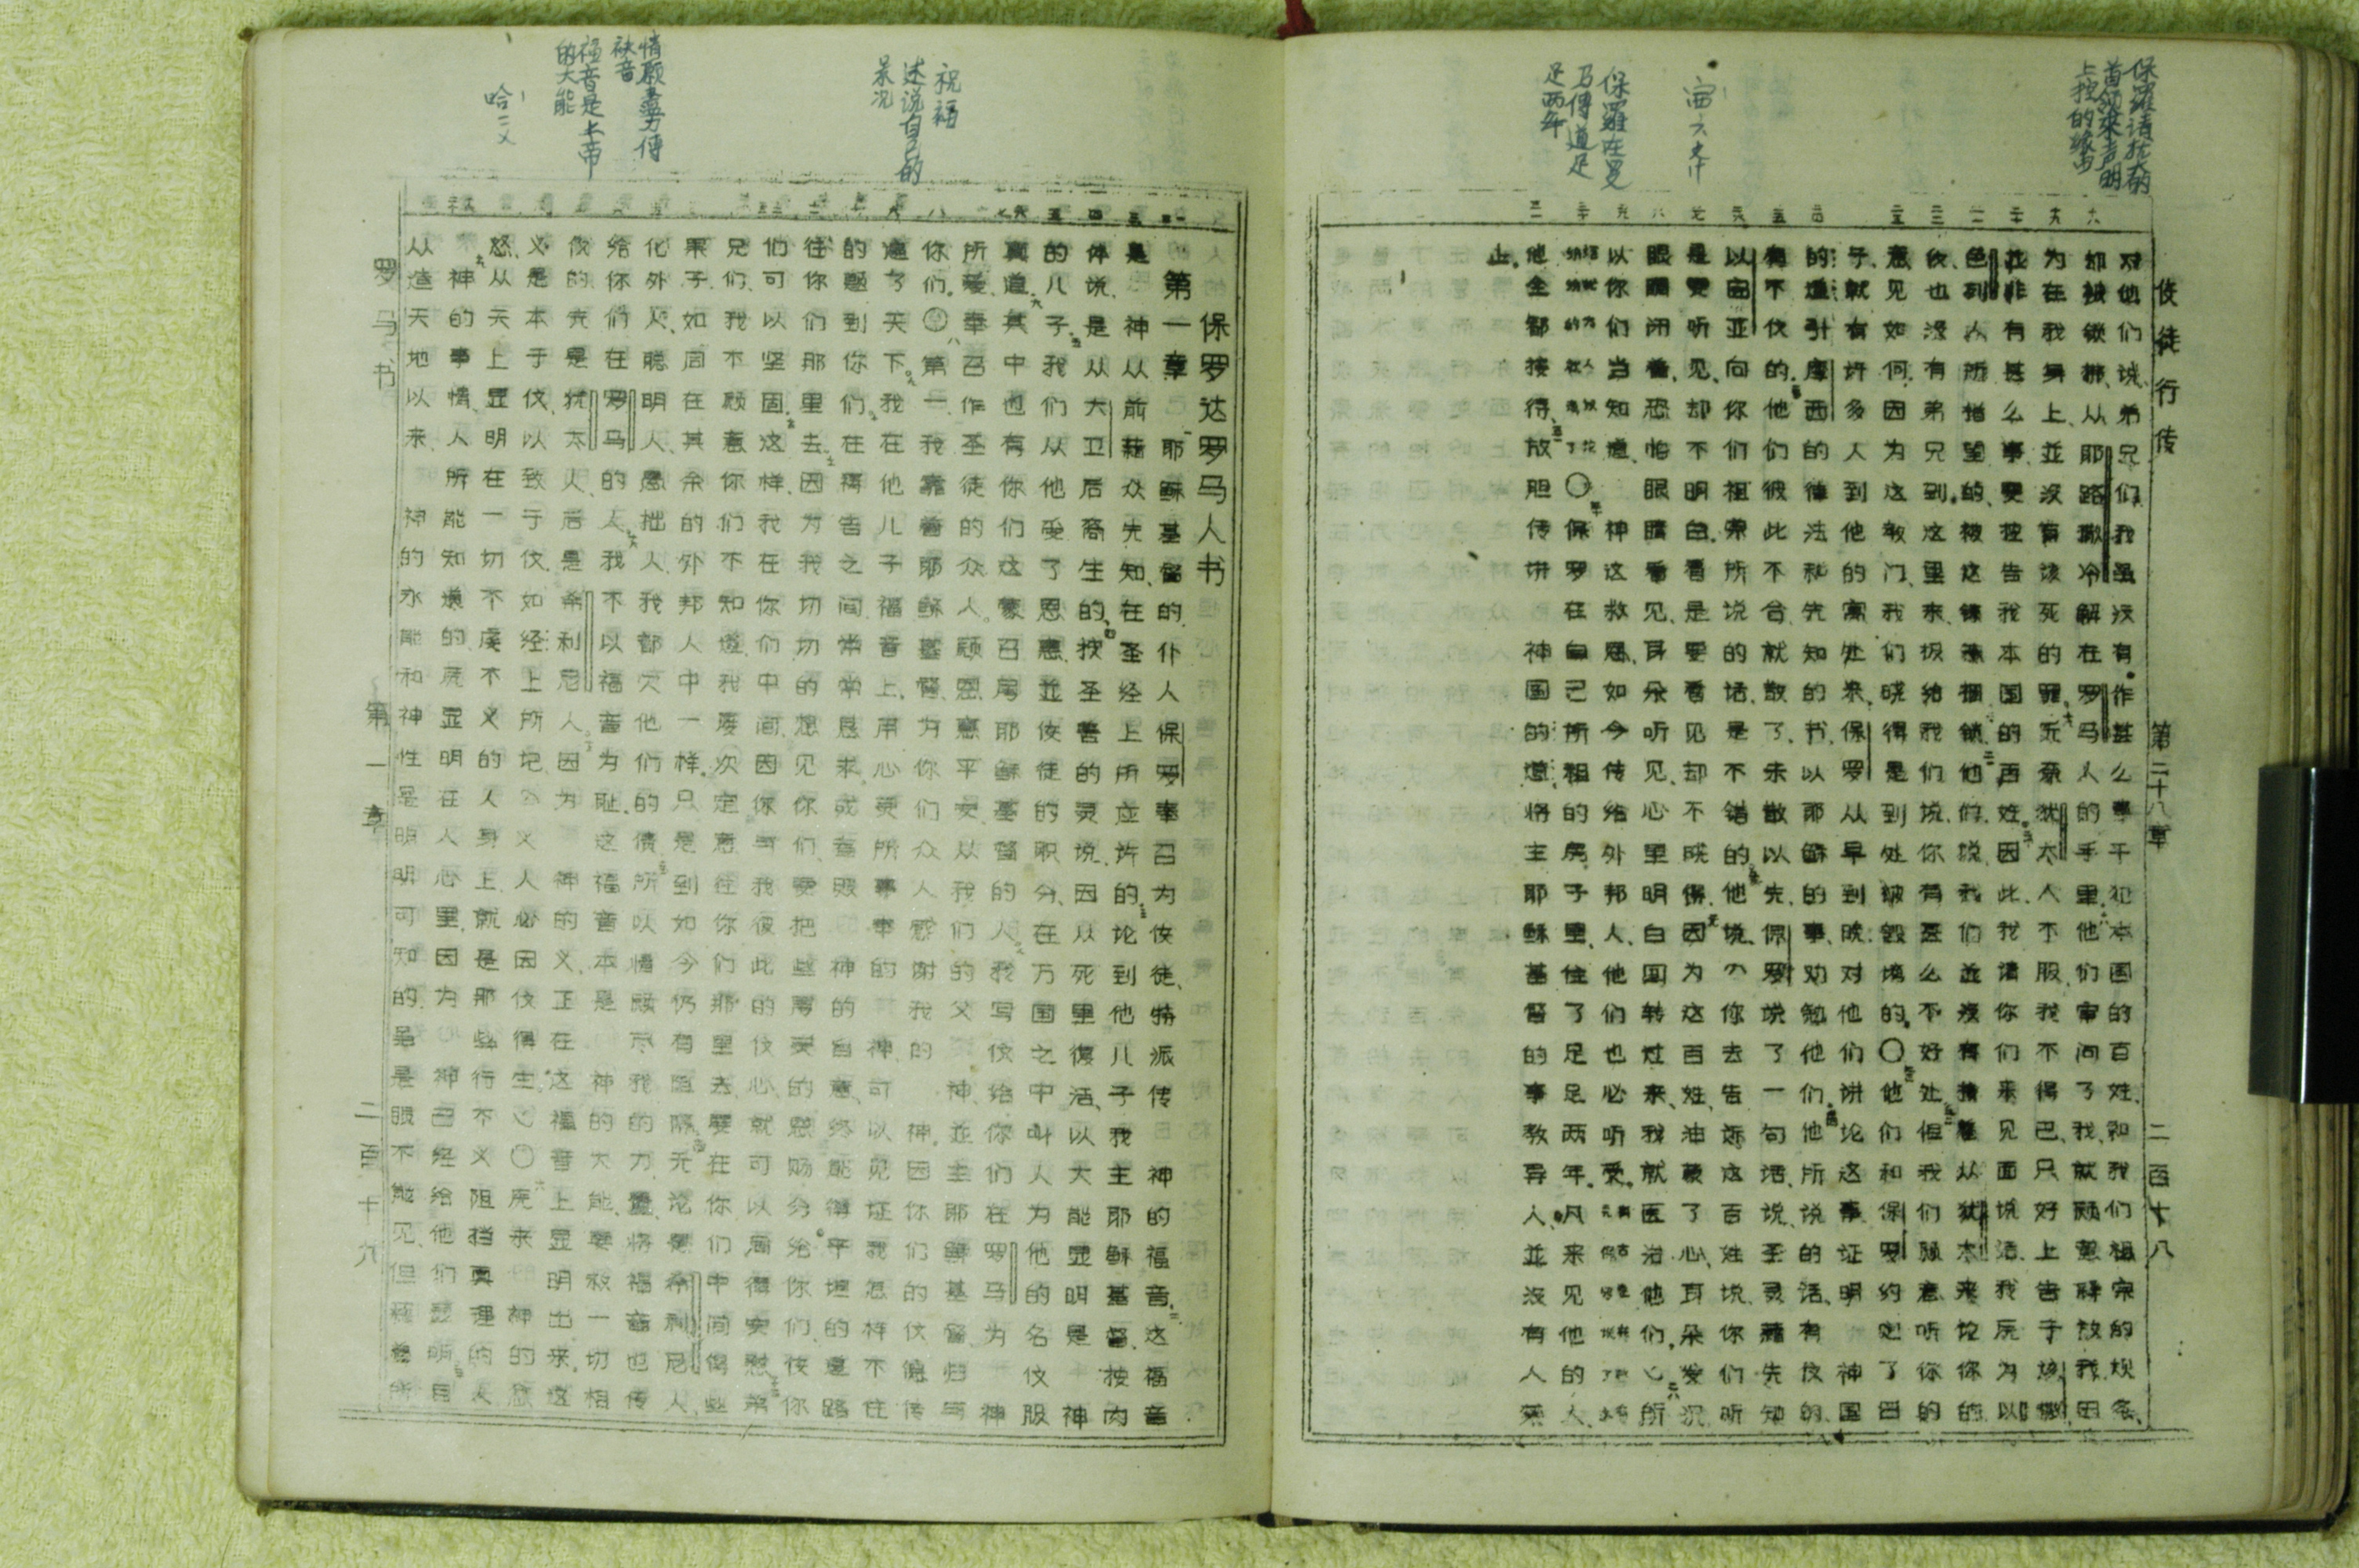 保羅请犹太的
首领来声明
上控的缘由
寅六十
保羅在罗
乃傳道足
足两年
使徒行传 第二十八章 二百十八
对他们说、弟兄们、我虽没有作甚么事干犯本国百姓、和我们祖宗的规条、
却被锁绑、从耶路撒冷解在罗马人的手里、他们审问了我、就愿意释放我、因
为在我身上、並没有该死的罪、无奈犹太人不服、我不得已、只好上告于该撒、
並非有甚么事、要控告我本国的百姓、因此我请你们来见面说话、我原为以
色列人所指望的、被这鍊子捆锁、他们说、我们並没有接着从犹太来论你的
信、也没有弟兄到这里来、报给我们说、你有甚么不好处、但我们愿意听你的
意见如何、因为这教门、我们晓得是到处被毁谤的。〇他们和保罗约定了日
子、就有许多人到他的寓处来、保罗从早到晚、对他们讲论这事、证明神国
的道、引摩西的律法和先知的书、以耶稣的事、劝勉他们、他所说的话、有信
的、有不信的、他们彼此不合、就散了、未散以先、保罗说了一句话、说、圣灵藉先知
以赛亚、向你们祖宗所说的话、是不错的、他说、你去告诉这百姓说、你们听
是要听见、却不明白、看是要看见、却不晓得、因为这百姓油蒙了心、耳朵发沉
眼睛闭着、恐怕眼睛看见、耳朵听见、心里明白、回转过来、我就医治他们、所
以你们当知道、神这救恩、如今传给外邦人、他们也必听受。
〇保罗在自己所租的房子里、住了足足两年、凡来见他的人、
他全都接待、放胆传讲神国的道、将主耶稣基督的事教导人、並没有人禁
止。
祝福
述说自己的
景况
情愿盡力傳
福音
福音是上帝
的大能
哈二义
保罗达罗马人书
第一章
耶稣基督的仆人保罗、奉召为使徒、特派传神的福音、这福音
是神从前藉众先知、在圣经上所应许的、论到他儿子我主耶稣基督、按肉
体说、是从大卫后裔生的、按圣善的灵说、因从死里復活、以大能显明是神
的儿子、我们从他受了恩惠、並使徒的职分、在万国之中叫人为他的名信服
真道、其中也有你们这蒙召属耶稣基督的人、我写信给你们在罗马为神
所爱、奉召作圣徒的众人、愿恩惠平安、从我们的父神、並主耶稣基督、归与
你们。〇第一我靠着耶稣基督、为你们众人感谢我的神、因你们的信德传
遍了天下、我在他儿子福音上、用心灵所事奉的神、可以见证我怎样不住
的题到你们、在祷告之间、常常恳求、或者照神的意、终能得平坦的道路
往你们那里去、因为我切切的想见你们、要把些属灵的恩赐分给你们、使你
们可以坚固、这样我在你们中间、因你与我彼此的信心、就可以同得安慰、弟
兄们、我不愿意你们不知道、我屡次定意往你们那里去、要在你们中间得些
果子、如同在其余的外邦人中一样、只是到如今仍有阻隔、无论是希利尼人、
化外人、聪明人、愚拙人、我都欠他们的债、所以情愿尽我的力量、将福音也传
给你们在罗马的人、我不以福音为耻、这福音本是神的大能、要救一切相
信的、先是犹太人、后是希利尼人、因为神的义正在这福音上显明出来、这
义是本于信、以致于信、如经上所记、义人必因信得生。〇原来神的忿
怒、从天上显明在一切不虔不义的人身上、就是那些行不义阻挡真理的人、
神的事情、人所能知道的、原显明在人心里、因为神已经给他们显明、自
从造天地以来、神的永能和神性是明明可知的、虽是眼不能见、但藉着所
罗马书 第一章 二百十九